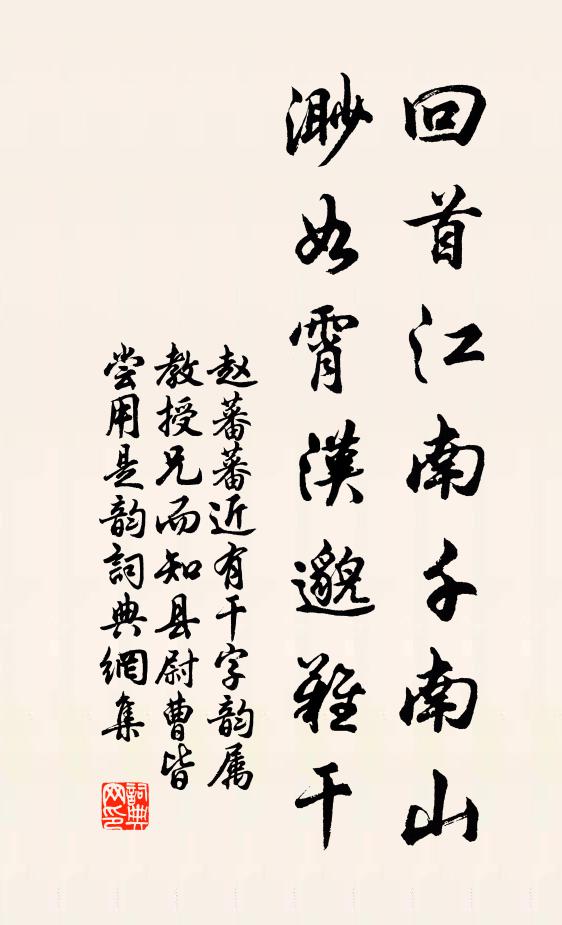 回首江南千南山
渺如霄漢邈難干
赵蕃蕃近有干字韵属
教授兄而知县尉曹皆
尝用是韵詞典網集
詞典網印